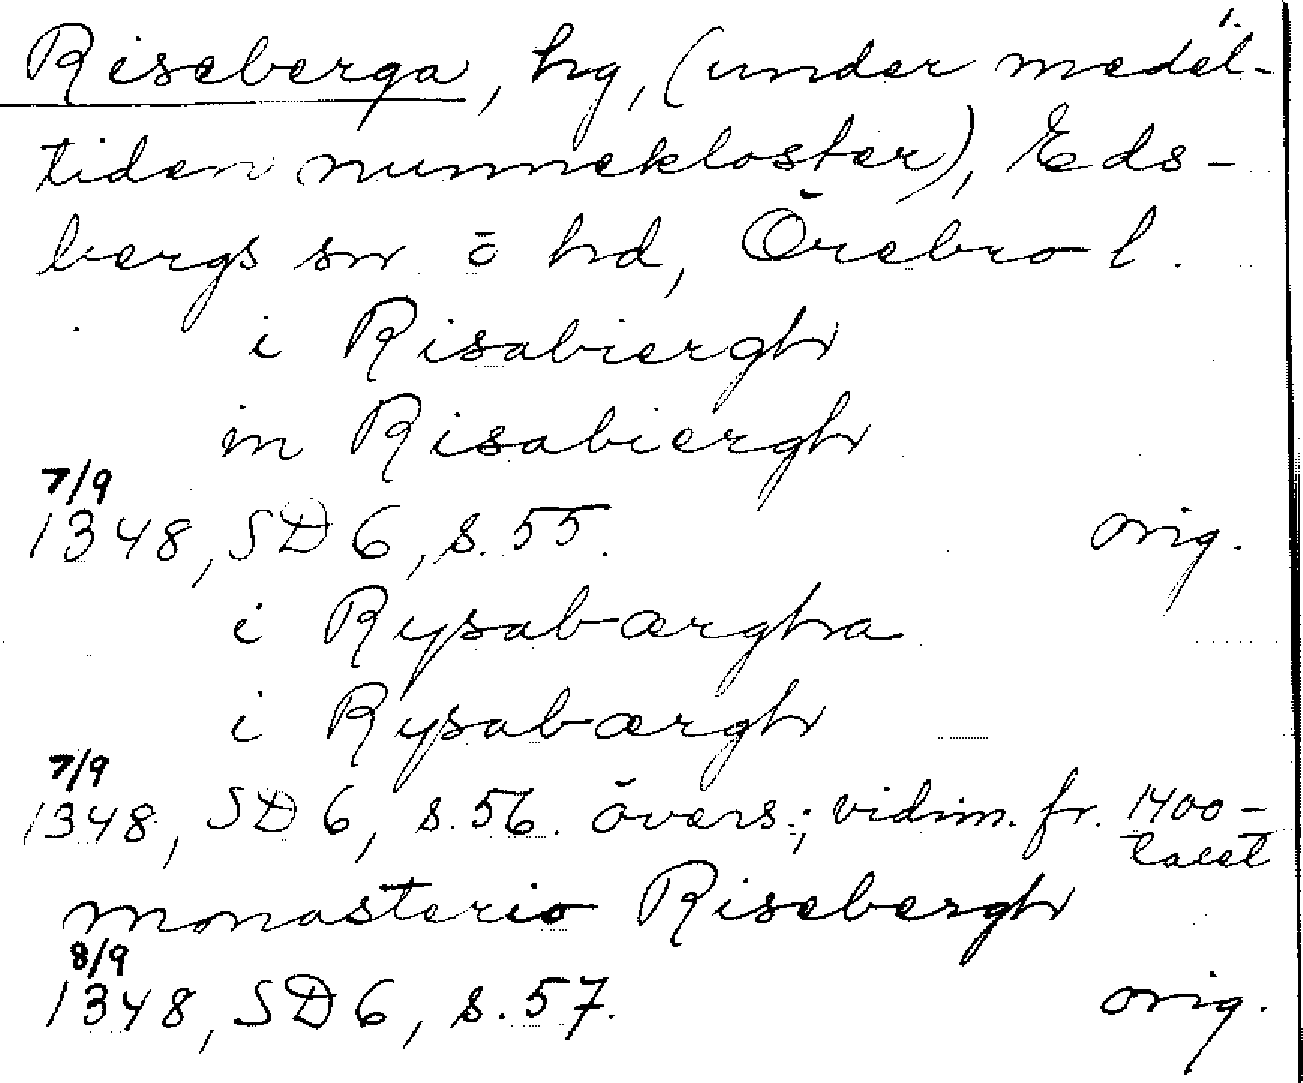 1.
Riseberga, hg, (under medel-
tiden nunnekloster), Eds-
bergs sn ō hd, Örebro l.
i Risabiergh
in Risabiergh
7/9
1348, SD 6, s. 55. orig.
i Rysabærgha
i Rysabærgh
7/9
1348, SD 6, s. 56. övers.; vidim. fr. 1400-
talet
monasterio Risebergh
8/9
1348, SD 6, s. 57. orig.